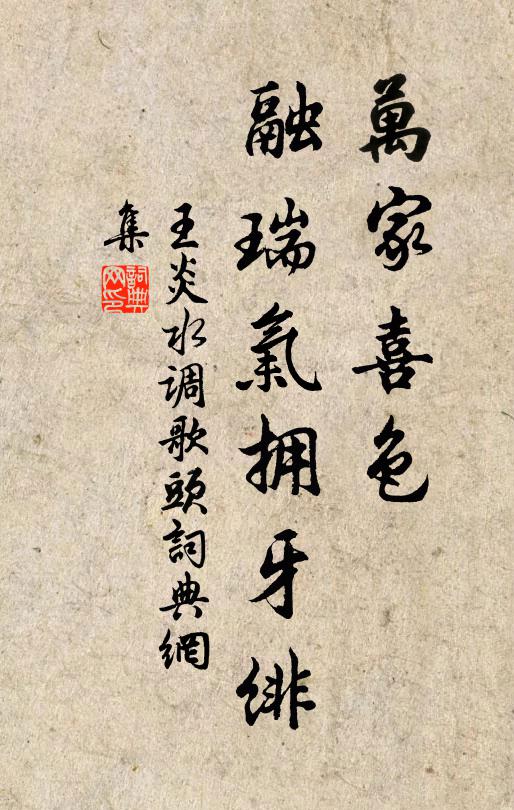 萬家喜色
融瑞氣拥牙緋
王炎水调歌頭詞典網
集
詞典网印